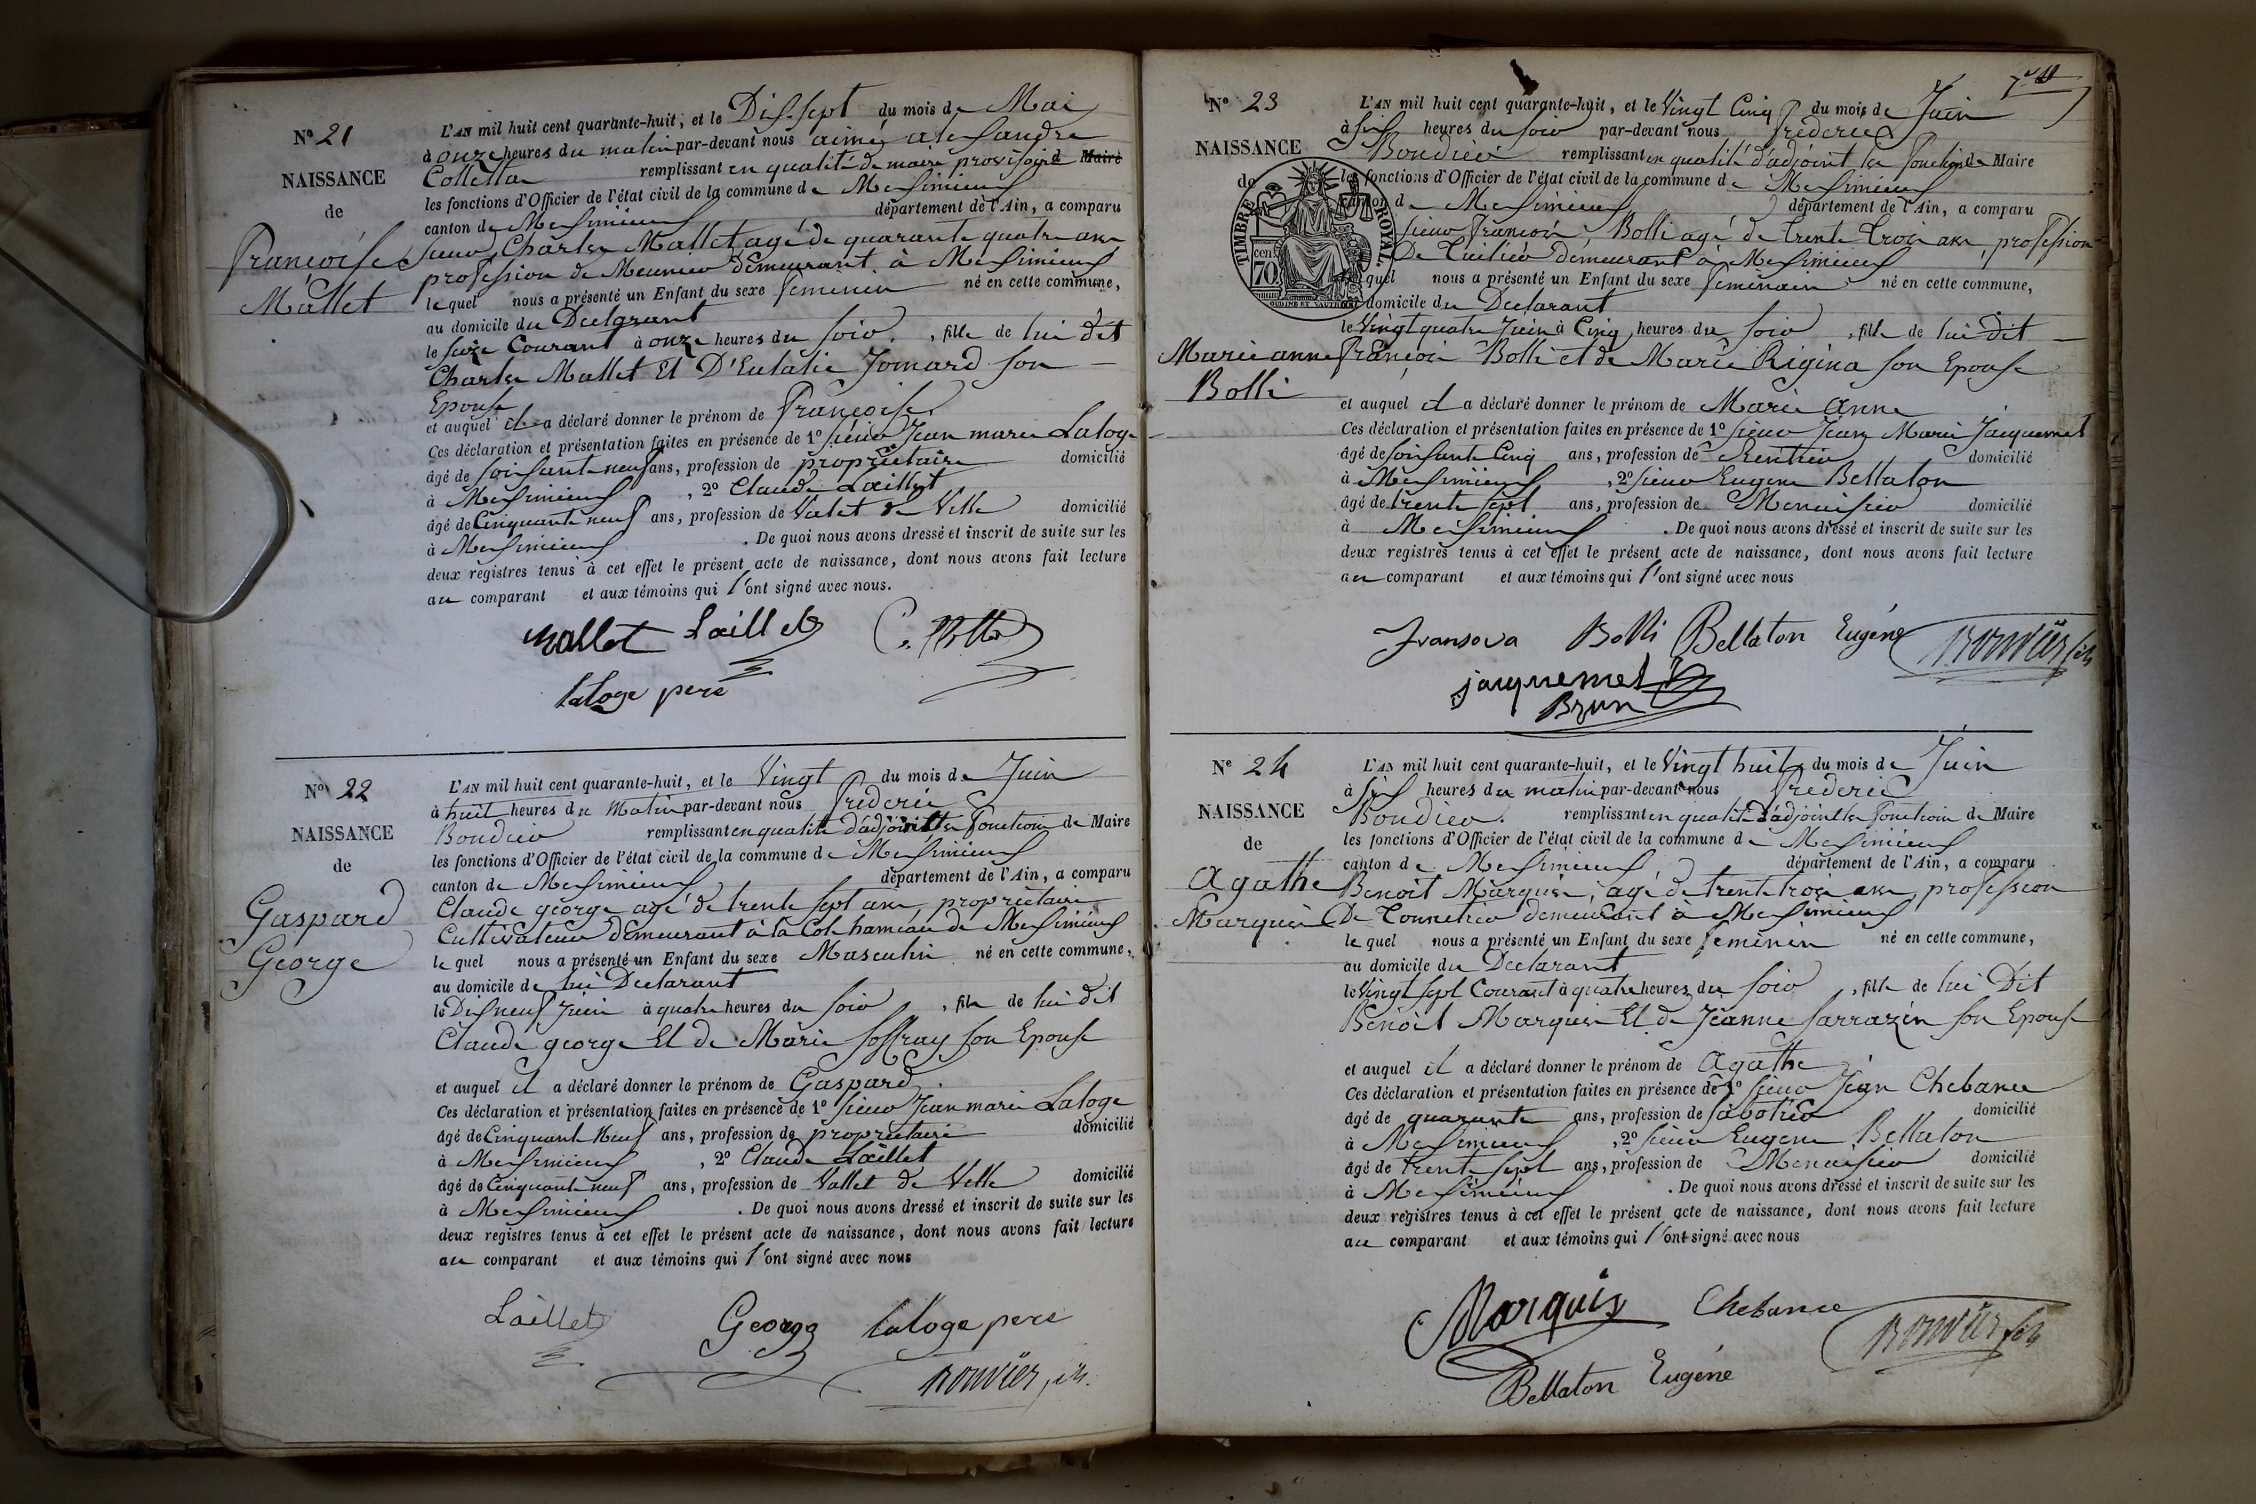 N° 21
NAISSANCE
de
Françoise
Mallet
L'AN mil huit cent quarante-huit, et le Dix-sept du mois de Mai
à onze heures du matin par-devant nous aimé alexandre
Colletta remplissant en qualité de maire provisoire de Maire
les fonctions d'Officier de l'état civil de la commune de Meximieux
canton de Meximieux département de l'Ain, a comparu
sieur Charles Mallet agé de quarante quatre ans
profession de Meunier demeurant à Meximieux
lequel nous a présenté un Enfant du sexe feminin né en cette commune,
au domicile du Declarant
le seize Courant à onze heures du soir, fille de lui dit
Charles Mallet Et D'Eulalie Jomard son
Epouse
et auquel il a déclaré donner le prénom de Françoise
Ces déclaration et présentation faites en présence de 1° sieur Jean marie Laloge
âgé de soixante neuf ans, profession de propriétaire domicilié
à Meximieux, 2° Claude Laillet
âgé de Cinquante neuf ans, profession de Valet de Ville domicilié
à Meximieux. De quoi nous avons dressé et inscrit de suite sur les
deux registres tenus à cet effet le présent acte de naissance, dont nous avons fait lecture
au comparant et aux témoins qui l'ont signé avec nous.
Mallet Laillet
laloge pere
N° 22
NAISSANCE
de
Gaspard
George
L'AN mil huit cent quarante-huit, et le Vingt du mois de Juin
à huit heures du Matin par-devant nous Fréderic
Boudier remplissant en qualité d'adjoint les fonctions de Maire
les fonctions d'Officier de l'état civil de la commune de Meximieux
canton de Meximieux département de l'Ain, a comparu
Claude george agé de trente sept ans, propriétaire
Cultivateur demeurant à la Cote hameau de Meximieux
lequel nous a présenté un Enfant du sexe Masculin né en cette commune,
au domicile de lui Declarant
le Dixneuf Juin à quatre heures du soir, fils de lui dit
Claude george Et de Marie Joffray son Epouse
et auquel il a déclaré donner le prénom de Gaspard.
Ces déclaration et présentation faites en présence de 1° sieur Jean marie Laloge
âgé de Cinquante Neuf ans, profession de propriétaire domicilié
à Meximieux, 2° Claude Laillet
âgé de Cinquante neuf ans, profession de Vallet de Ville domicilié
à Meximieux. De quoi nous avons dressé et inscrit de suite sur les
deux registres tenus à cet effet le présent acte de naissance, dont nous avons fait lecture
au comparant et aux témoins qui l'ont signé avec nous
Laillet George laloge pere
N° 23
NAISSANCE
de
TIMBRE ROYAL
cen. 70
Marie anne
Bolli
L'AN mil huit cent quarante-huit, et le Vingt Cinq du mois de Juin
à six heures du soir par-devant nous Fréderic
Boudier remplissant en qualité d'adjoint les fonctions de Maire
les fonctions d'Officier de l'état civil de la commune de Meximieux
canton de Meximieux département de l'Ain, a comparu
sieur François Bolli agé de trente trois ans, profession
De Tuilier demeurant à Meximieux
lequel nous a présenté un Enfant du sexe feminin né en cette commune,
au domicile du Declarant
le Vingt quatre Juin à Cinq heures du soir, fille de lui Dit
François Bolli et de Marie Rigina son Epouse
et auquel il a déclaré donner le prénom de Marie anne
Ces déclaration et présentation faites en présence de 1° sieur Jean Marie Jacquemet
âgé de soixante Cinq ans, profession de Rentier domicilié
à Meximieux, 2° sieur Eugene Bellaton
âgé de trente sept ans, profession de Menuisier domicilié
à Meximieux. De quoi nous avons dressé et inscrit de suite sur les
deux registres tenus à cet effet le présent acte de naissance, dont nous avons fait lecture
au comparant et aux témoins qui l'ont signé avec nous
Bolli Bellaton Eugéne
jacquemet
Brun
N° 24
NAISSANCE
de
Agathe
Marquis
L'AN mil huit cent quarante-huit, et le Vingt huit du mois de Juin
à six heures du matin par-devant nous Fréderic
Boudier. remplissant en qualité d'adjoint les fonctions de Maire
les fonctions d'Officier de l'état civil de la commune de Meximieux
canton de Meximieux département de l'Ain, a comparu
Benoit Marquis, agé de trente trois ans, profession
De Tonnelier demeurant à Meximieux
lequel nous a présenté un Enfant du sexe feminin né en cette commune,
au domicile du Declarant
le Vingt sept Courant à quatre heures du soir, fille de lui Dit
Benoit Marquis Et de Jeanne Sarrazin son Epouse
et auquel il a déclaré donner le prénom de Agathe
Ces déclaration et présentation faites en présence de 1° sieur Jean Chebance
âgé de quarante ans, profession de sabotier domicilié
à Meximieux, 2° sieur Eugene Bellaton
âgé de trente sept ans, profession de Menuisier domicilié
à Meximieux. De quoi nous avons dressé et inscrit de suite sur les
deux registres tenus à cet effet le présent acte de naissance, dont nous avons fait lecture
au comparant et aux témoins qui l'ont signé avec nous
Marquis Chebance
Bellaton Eugéne